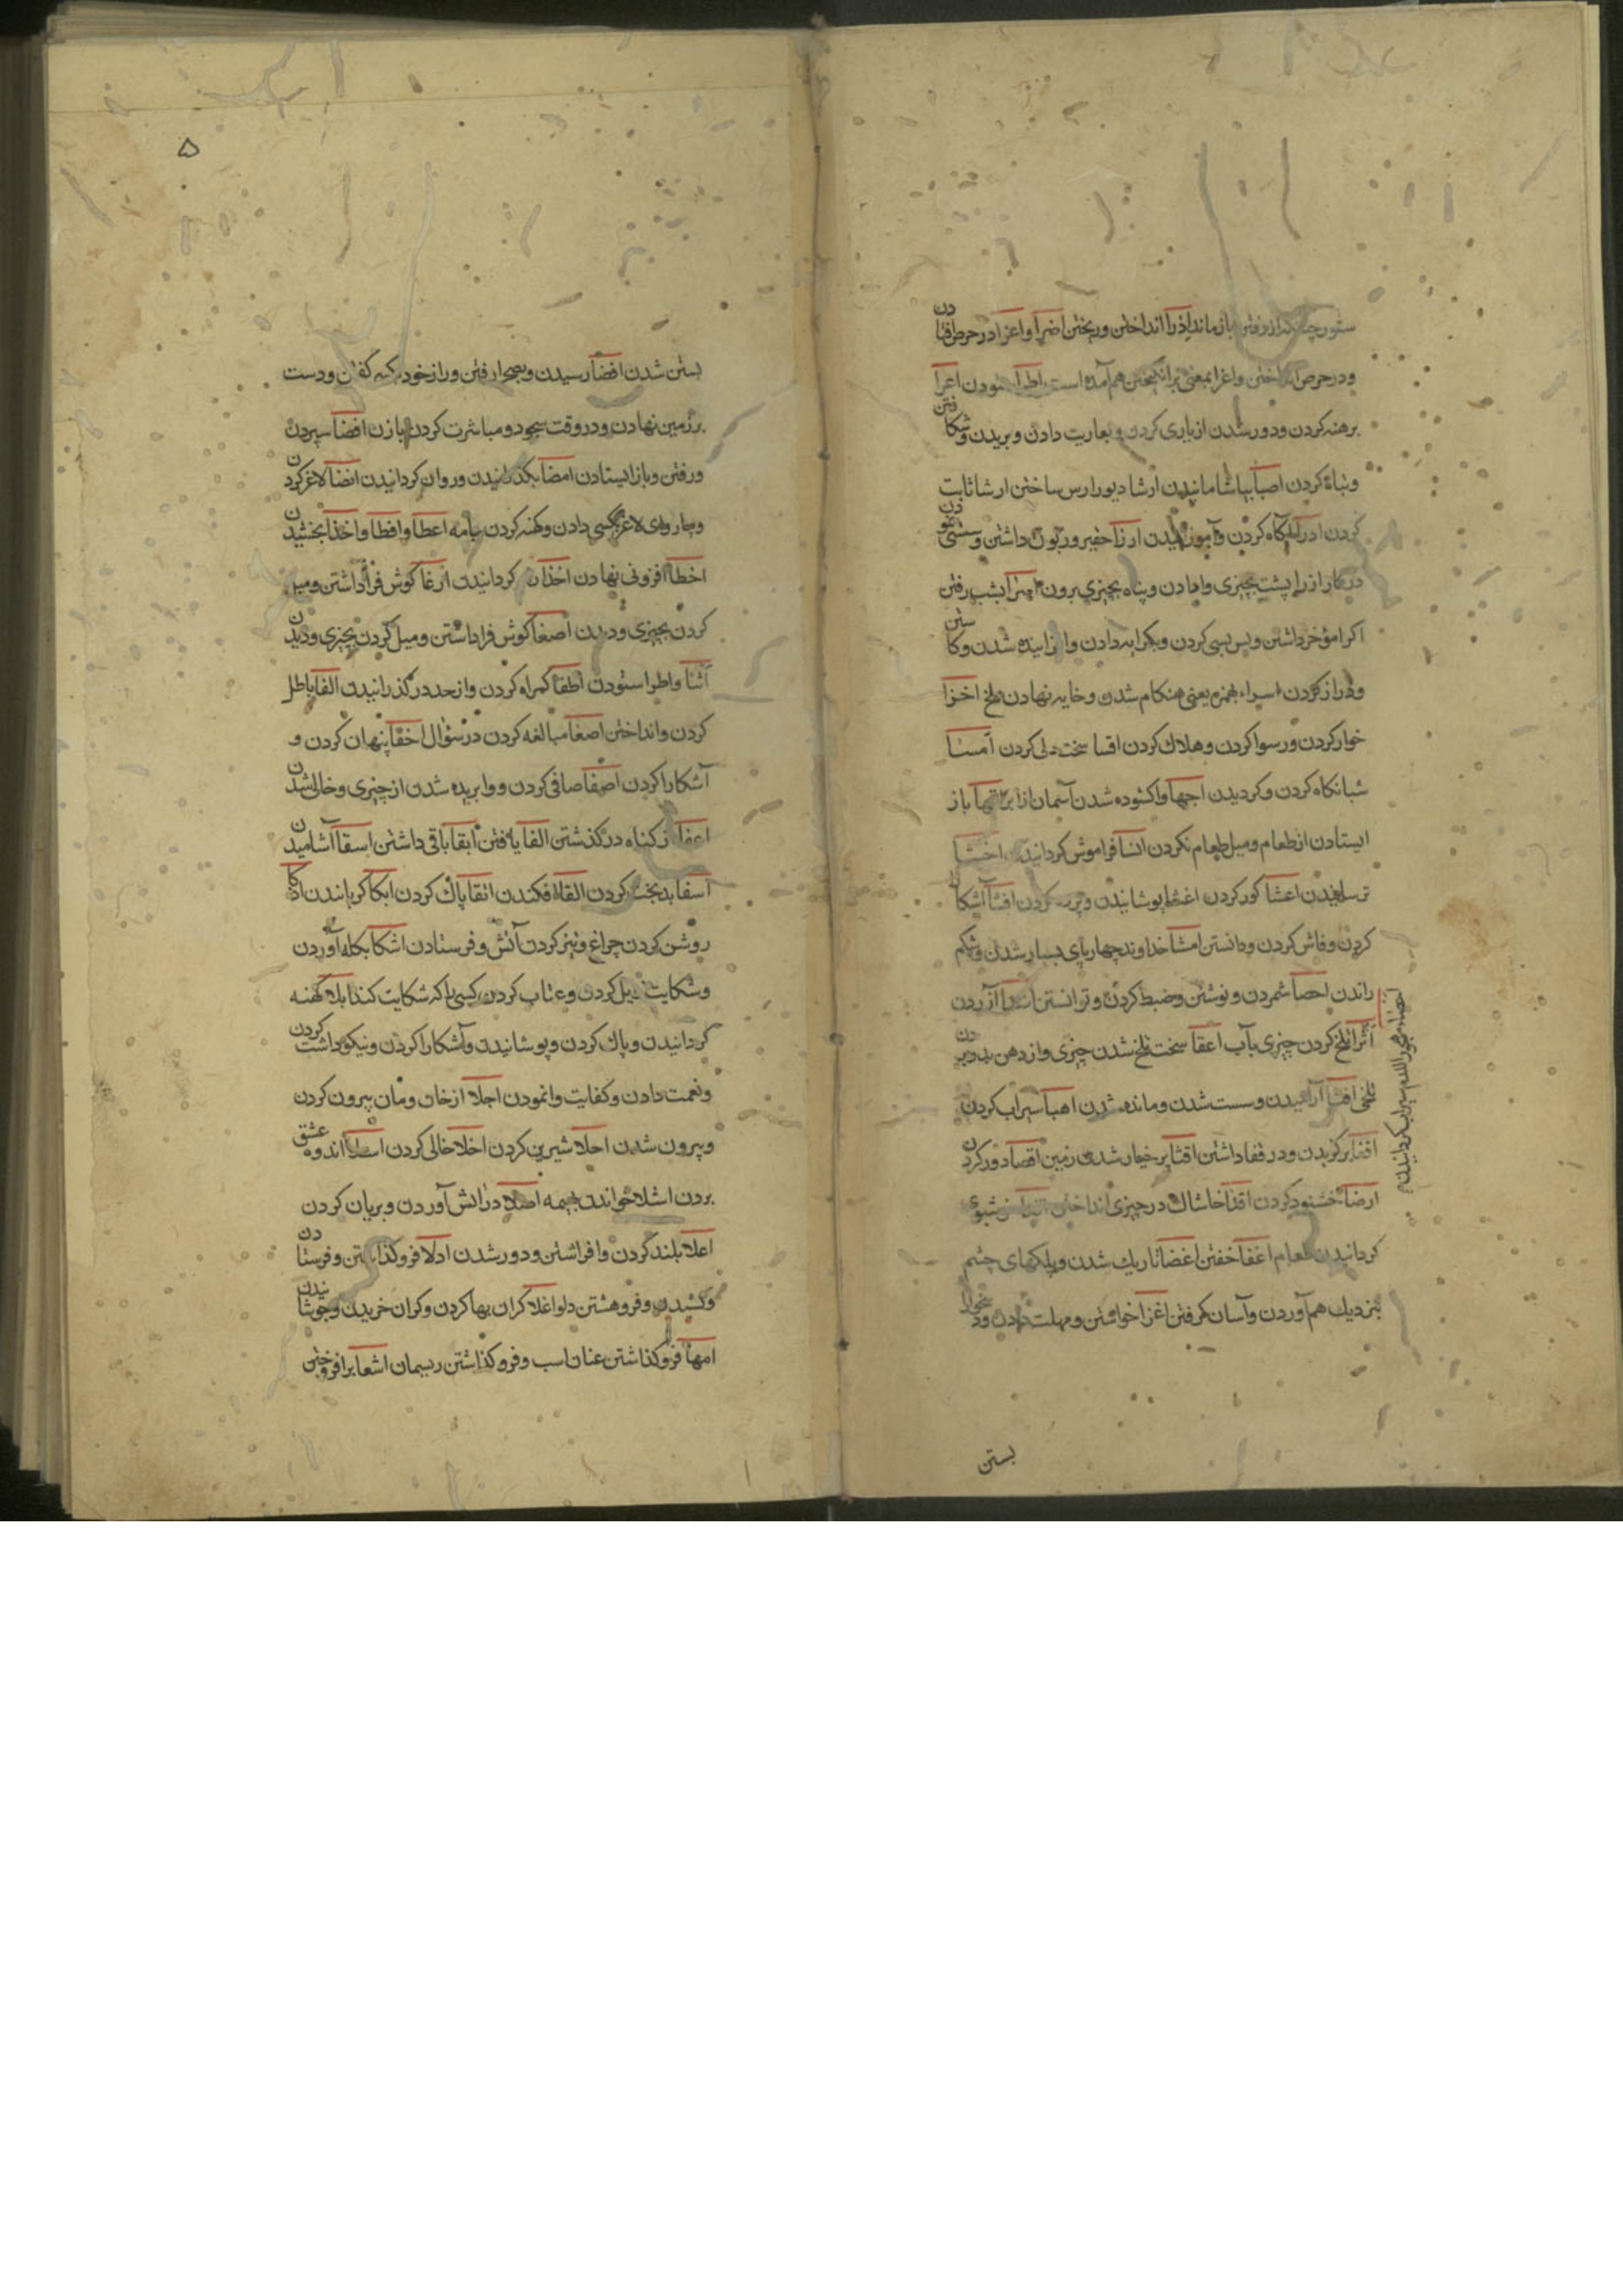 ستور چنانکه از رفتن بازماند اذرا انداختن و ریختن اضرا و اغرا در حرص افتادن
و در حرص انداختن و اغرا بمعنی برانکیختن هم آمده است اطرا ستودن اعرا
برهنه کردن و دور شدن از یاری کردن و بعاریت دادن و بریدن و شکافتن
و تباه کردن ارشا ثابت
کردن ادرا آکاه کردن و آموزانیدن ارزا حقیر و زبون داشتن و سستی نمودن
در کار ازرا پشت بچیزی وادادن و پناه بچیزی بردن اسرا بشب رفتن
اکرا مؤخر داشتن و پس پسی کردن و بکرایه دادن و زاییده شدن و کاستن
و دراز کردن اسراء بهمزه یعنی هنکام شدن و خایه نهادن ملخ اخزا
خوار کردن و رسوا کردن و هلاک کردن اقسا سخت دلی کردن امسا
شبانکاه کردن و کردیدن اجها واکشوده شدن آسمان از ابر اقها باز
ایستادن از طعام و میل طعام نکردن انسا فراموش کردانیدن اخشا
ترسانیدن اعشا کور کردن اغشا پوشانیدن و پرده کردن افشا آشکارا
کردن و فاش کردن و دانستن امشا خداوند چهارپای بسیار شدن و شکم
راندن احصا شمردن و نوشتن و ضبط کردن و توانستن آزردن
چیزی بآب اعقا سخت تلخ شدن چیزی و از دهن بدر بردن
تلخی آرامیدن و سست شدن و مانده شدن اهبا سیراب کردن
اقفا برکزیدن و در قفا داشتن اقثا پر خیار شدن زمین اقصا دور کردن
ارضا خشنود کردن اقذا خاشاک در چیزی انداختن خوشبوی
کردانیدن طعام اغفا خفتن اغضا تاریک شدن و پلکهای چشم
بنزدیک هم آوردن و آسان فرا کرفتن اغزا خواستن و مهلت دادن
بستن
۵
بستن شدن افضا رسیدن و بصحرا رفتن و راز خود بکسی کفتن و دست
بر زمین نهادن در وقت سجود و مباشرت کردن بازن افضا سپردن
و رفتن و باز ایستادن امضا بکذرانیدن و روان کردانیدن انضا لاغر کردن
و چاروای لاغر بکسی دادن و کهنه کردن جامه اعطا و افطا و اخذا بخشیدن
اخطا افزونی نهادن اخذا کردانیدن ارغا کوش فرا داشتن و میل
کردن بچیزی و دیدن اصغا کوش فرا داشتن و میل کردن بچیزی و دیدن
اثنا و اطرا ستودن اطغا کمراه کردن و از حد در کذرانیدن الغا باطل
کردن و انداختن اصغا مبالغه کردن در سؤال اخفا پنهان کردن و
آشکارا کردن اصفا صافی کردن و وابریده شدن از چیزی و خالی شدن
اعفا از کناه در کذشتن الفا یافتن ابقا باقی داشتن اسقا آشامیدن
اشقا بدبخت کردن القا افکندن انقا پاک کردن ابکا کریاندن اذکا
روشن کردن چراغ و تیز کردن آتش و فرستادن اشکا بکله آوردن
و شکایت زایل کردن و عتاب کردن کسی را که شکایت کند ابلا کهنه
کردانیدن و پاک کردن و پوشانیدن و آشکارا کردن و نیکو داشت کردن
و نعمت دادن و کفایت وانمودن اجلا از خان و مان بیرون کردن
و بیرون شدن احلا شیرین کردن اخلا خالی کردن اسلا اندوه عشق
بردن اشلا خواندن بهیمه اصلا در آتش آوردن و بریان کردن
اعلا بلند کردن و افراشتن و دور شدن ادلا فرو کذاشتن و فرستادن
و کشیدن و فرو هشتن دلو اغلا کران بها کردن و کران خریدن و جوشانیدن
امها فرو کذاشتن عنان اسب و فرو کذاشتن ریسمان اشعا برافروختن